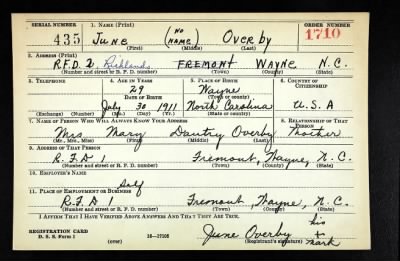 SERIAL NUMBER 1. NAME (Print) ORDER NUMBER
435 June (NO NAME) Overby 1710
(First) (Middle) (Last)
2. ADDRESS (Print)
R.F.D. 2 Richlands FREMONT WAYNE N.C.
(Number and street or R. F. D. number) (Town) (County) (State)
3. TELEPHONE 4. AGE IN YEARS 5. PLACE OF BIRTH 6. COUNTRY OF CITIZENSHIP
29 Wayne
DATE OF BIRTH (Town or county)
July 30 1911 North Carolina U.S.A
(Exchange) (Number) (Mo.) (Day) (Yr.) (State or country)
7. NAME OF PERSON WHO WILL ALWAYS KNOW YOUR ADDRESS 8. RELATIONSHIP OF THAT PERSON
Mrs Mary Overby Mother
(Mr., Mrs., Miss) (First) (Middle) (Last)
9. ADDRESS OF THAT PERSON
R.F.D 1 Fremont, Wayne, N.C.
(Number and street or R. F. D. number) (Town) (County) (State)
10. EMPLOYER'S NAME
Self
11. PLACE OF EMPLOYMENT OR BUSINESS
R.F.D 1 Fremont, Wayne, N.C.
(Number and street or R. F. D. number) (Town) (County) (State)
I AFFIRM THAT I HAVE VERIFIED ABOVE ANSWERS AND THAT THEY ARE TRUE.
his
REGISTRATION CARD June Overby x
D. S. S. Form 1 (over) 16—17105 (Registrant's signature) mark